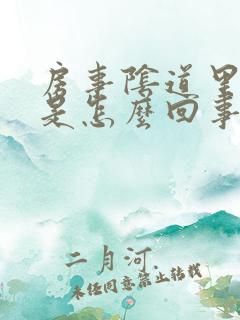 房事陰道里
是怎麼回事
二月河
未经同意禁止转载